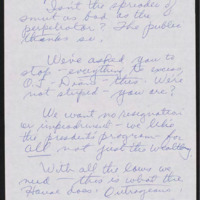 Isn't the spreader of
smut as bad as the
perpetrator? This public
thinks so.
We've asked you to
stop - everything to
O.J. - Diana - this. We're
not stupid - you are?
We want no resignation
or impeachment we like
the presents program - for
all not just the wealthy
With all the laws we
need - this is what the
House does? Outrageous